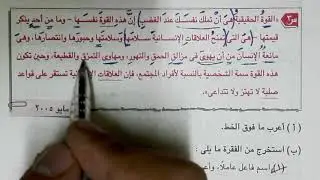 س٣ «القوة الحقيقية هى أن تملك نفسك عند الغضب، إن هذه القوة نفسها – وما من أحد ينكر
قيمتها – هى التى تمنح العلاقات الإنسانية سلامتها وسلامتها وحبورها وانتصارها، وهى
مانعة الإنسان من أن يهوى فى مزالق الحمق والتهور، ومهاوى التمزق والقطيعة، وحين تكون
هذه القوة سمة الشخصية بالنسبة لأفراد المجتمع، فإن العلاقات الإنسانية تستقر على قواعد
صلبة لا تهتز ولا تتداعى».
مايو ٢٠٠٥
(أ) أعرب ما فوق الخط.
(ب) استخرج من الفقرة ما يلى :
اسم فاعل عاملاً،